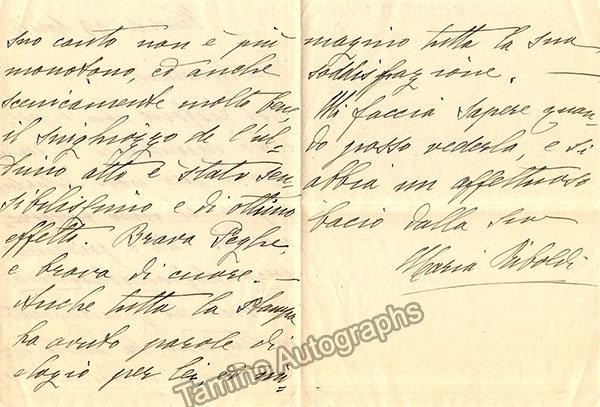 suo canto non è più
monotono, ed anche
scenicamente molto bene,
il singhiozzo de l'ul-
timo atto è stato sen-
sibilissimo e di ottimo
effetto. Brava Peghe,
e brava di cuore. —
Anche tutta la stampa
ha avuto parole di
elogio per lei, ed im-
magino tutta la sua
soddisfazione. —
Mi faccia sapere quan-
do posso vederla, e si
abbia un affettuoso
bacio dalla sua
Maria Riboldi
Tamino Autographs